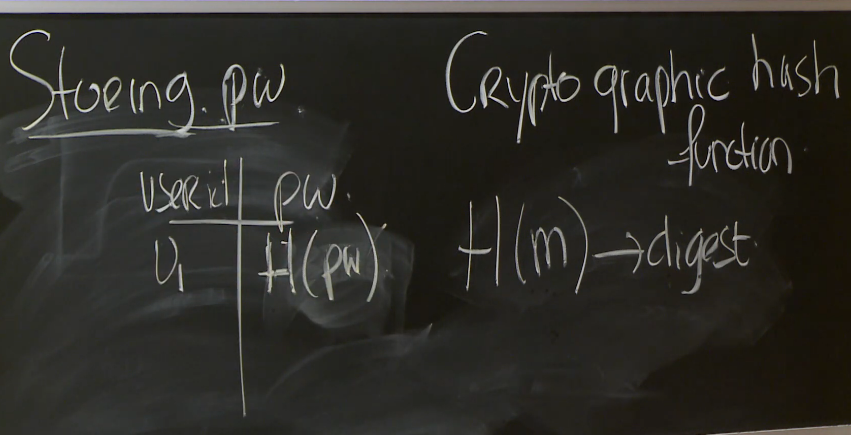 Storing pw
user id pw
U1 H(pw)
Cryptographic hash
function
H(m) → digest